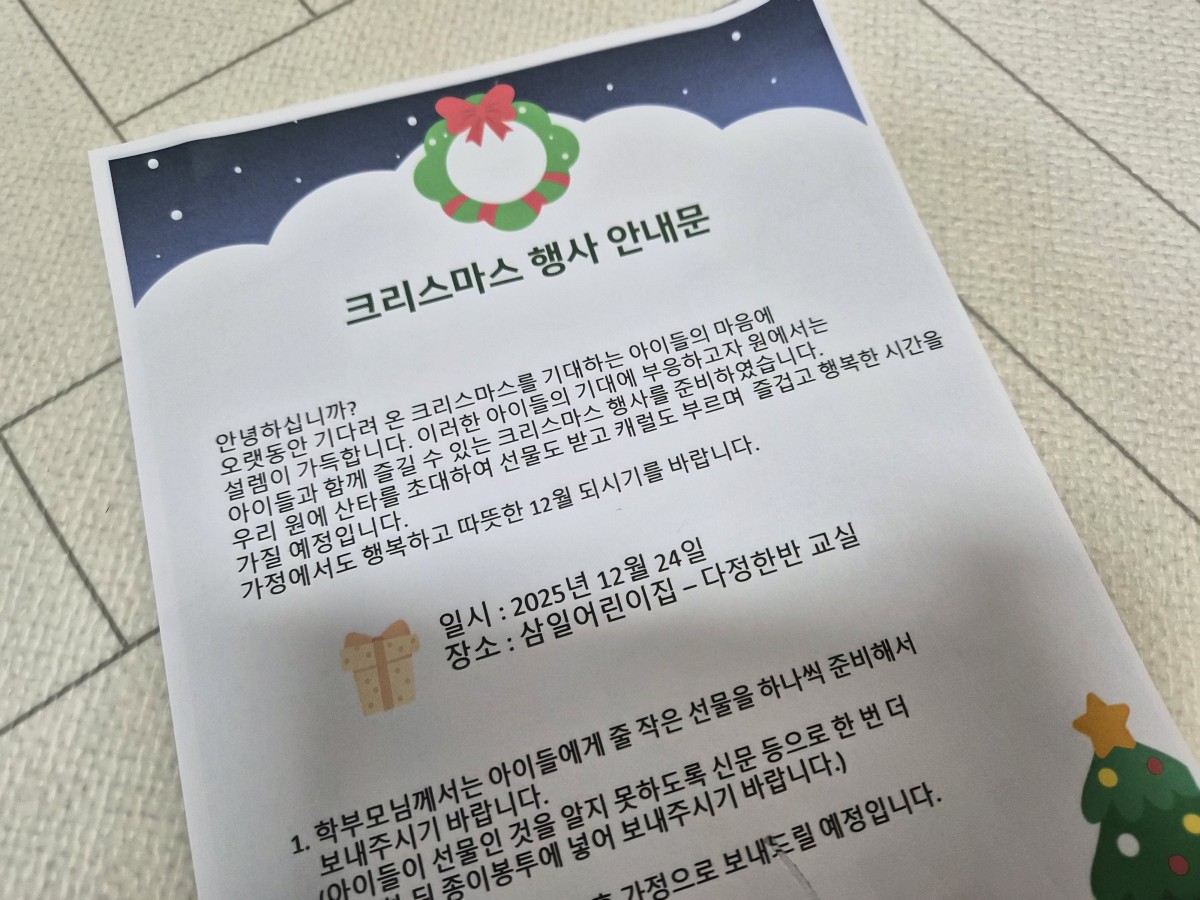 크리스마스 행사 안내문
안녕하십니까?
오랫동안 기다려 온 크리스마스를 기대하는 아이들의 마음에
설렘이 가득합니다. 이러한 아이들의 기대에 부응하고자 원에서는
아이들과 함께 즐길 수 있는 크리스마스 행사를 준비하였습니다.
우리 원에 산타를 초대하여 선물도 받고 캐럴도 부르며 즐겁고 행복한 시간을
가질 예정입니다.
가정에서도 행복하고 따뜻한 12월 되시기를 바랍니다.
일시 : 2025년 12월 24일
장소 : 삼일어린이집 – 다정한반 교실
1. 학부모님께서는 아이들에게 줄 작은 선물을 하나씩 준비해서
보내주시기 바랍니다.
(아이들이 선물인 것을 알지 못하도록 신문 등으로 한 번 더
뒤 종이봉투에 넣어 보내주시기 바랍니다.)
가정으로 보내드릴 예정입니다.